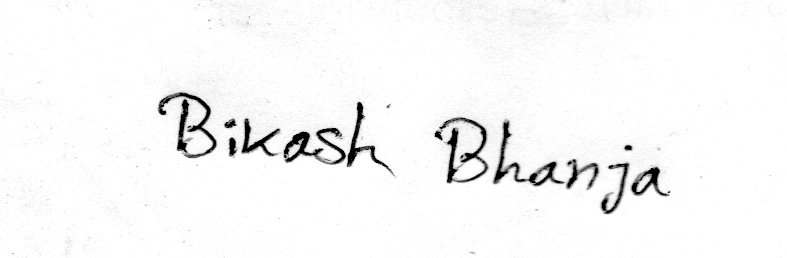 Bikash Bhanja